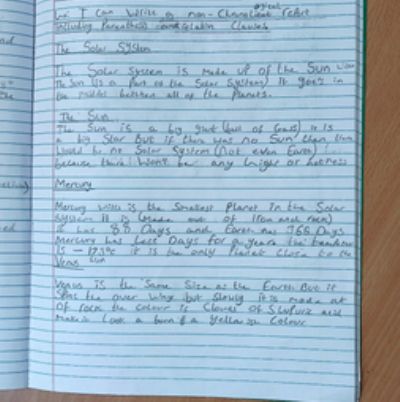 I can write a non-chronological report
including Parenthesis and relative Clauses.
The Solar System
The Solar System is made up of the Sun
The Sun is a Part of the Solar System) it goes in
the middle between all of the Planets.
The Sun
The Sun is a big giant (ball of Gass) it is
a big Star But if there was no Sun than there
Would be no Solar System (not even Earth)
because there Won't be any Light or hotness
Mercury
Mercury is the Smallest Planet in the Solar
System it is (Made out of Iron and rock)
it has 88 Days and Earth has 365 Days
Mercury has Less Days for a year the
is it is the only Planet Close to the
Sun
Venus
Venus is the Same Size as the Earth But it
Spins the over Way but Slowly it is made out
of rock the colour is of and
Make it Look a Yellow Colour